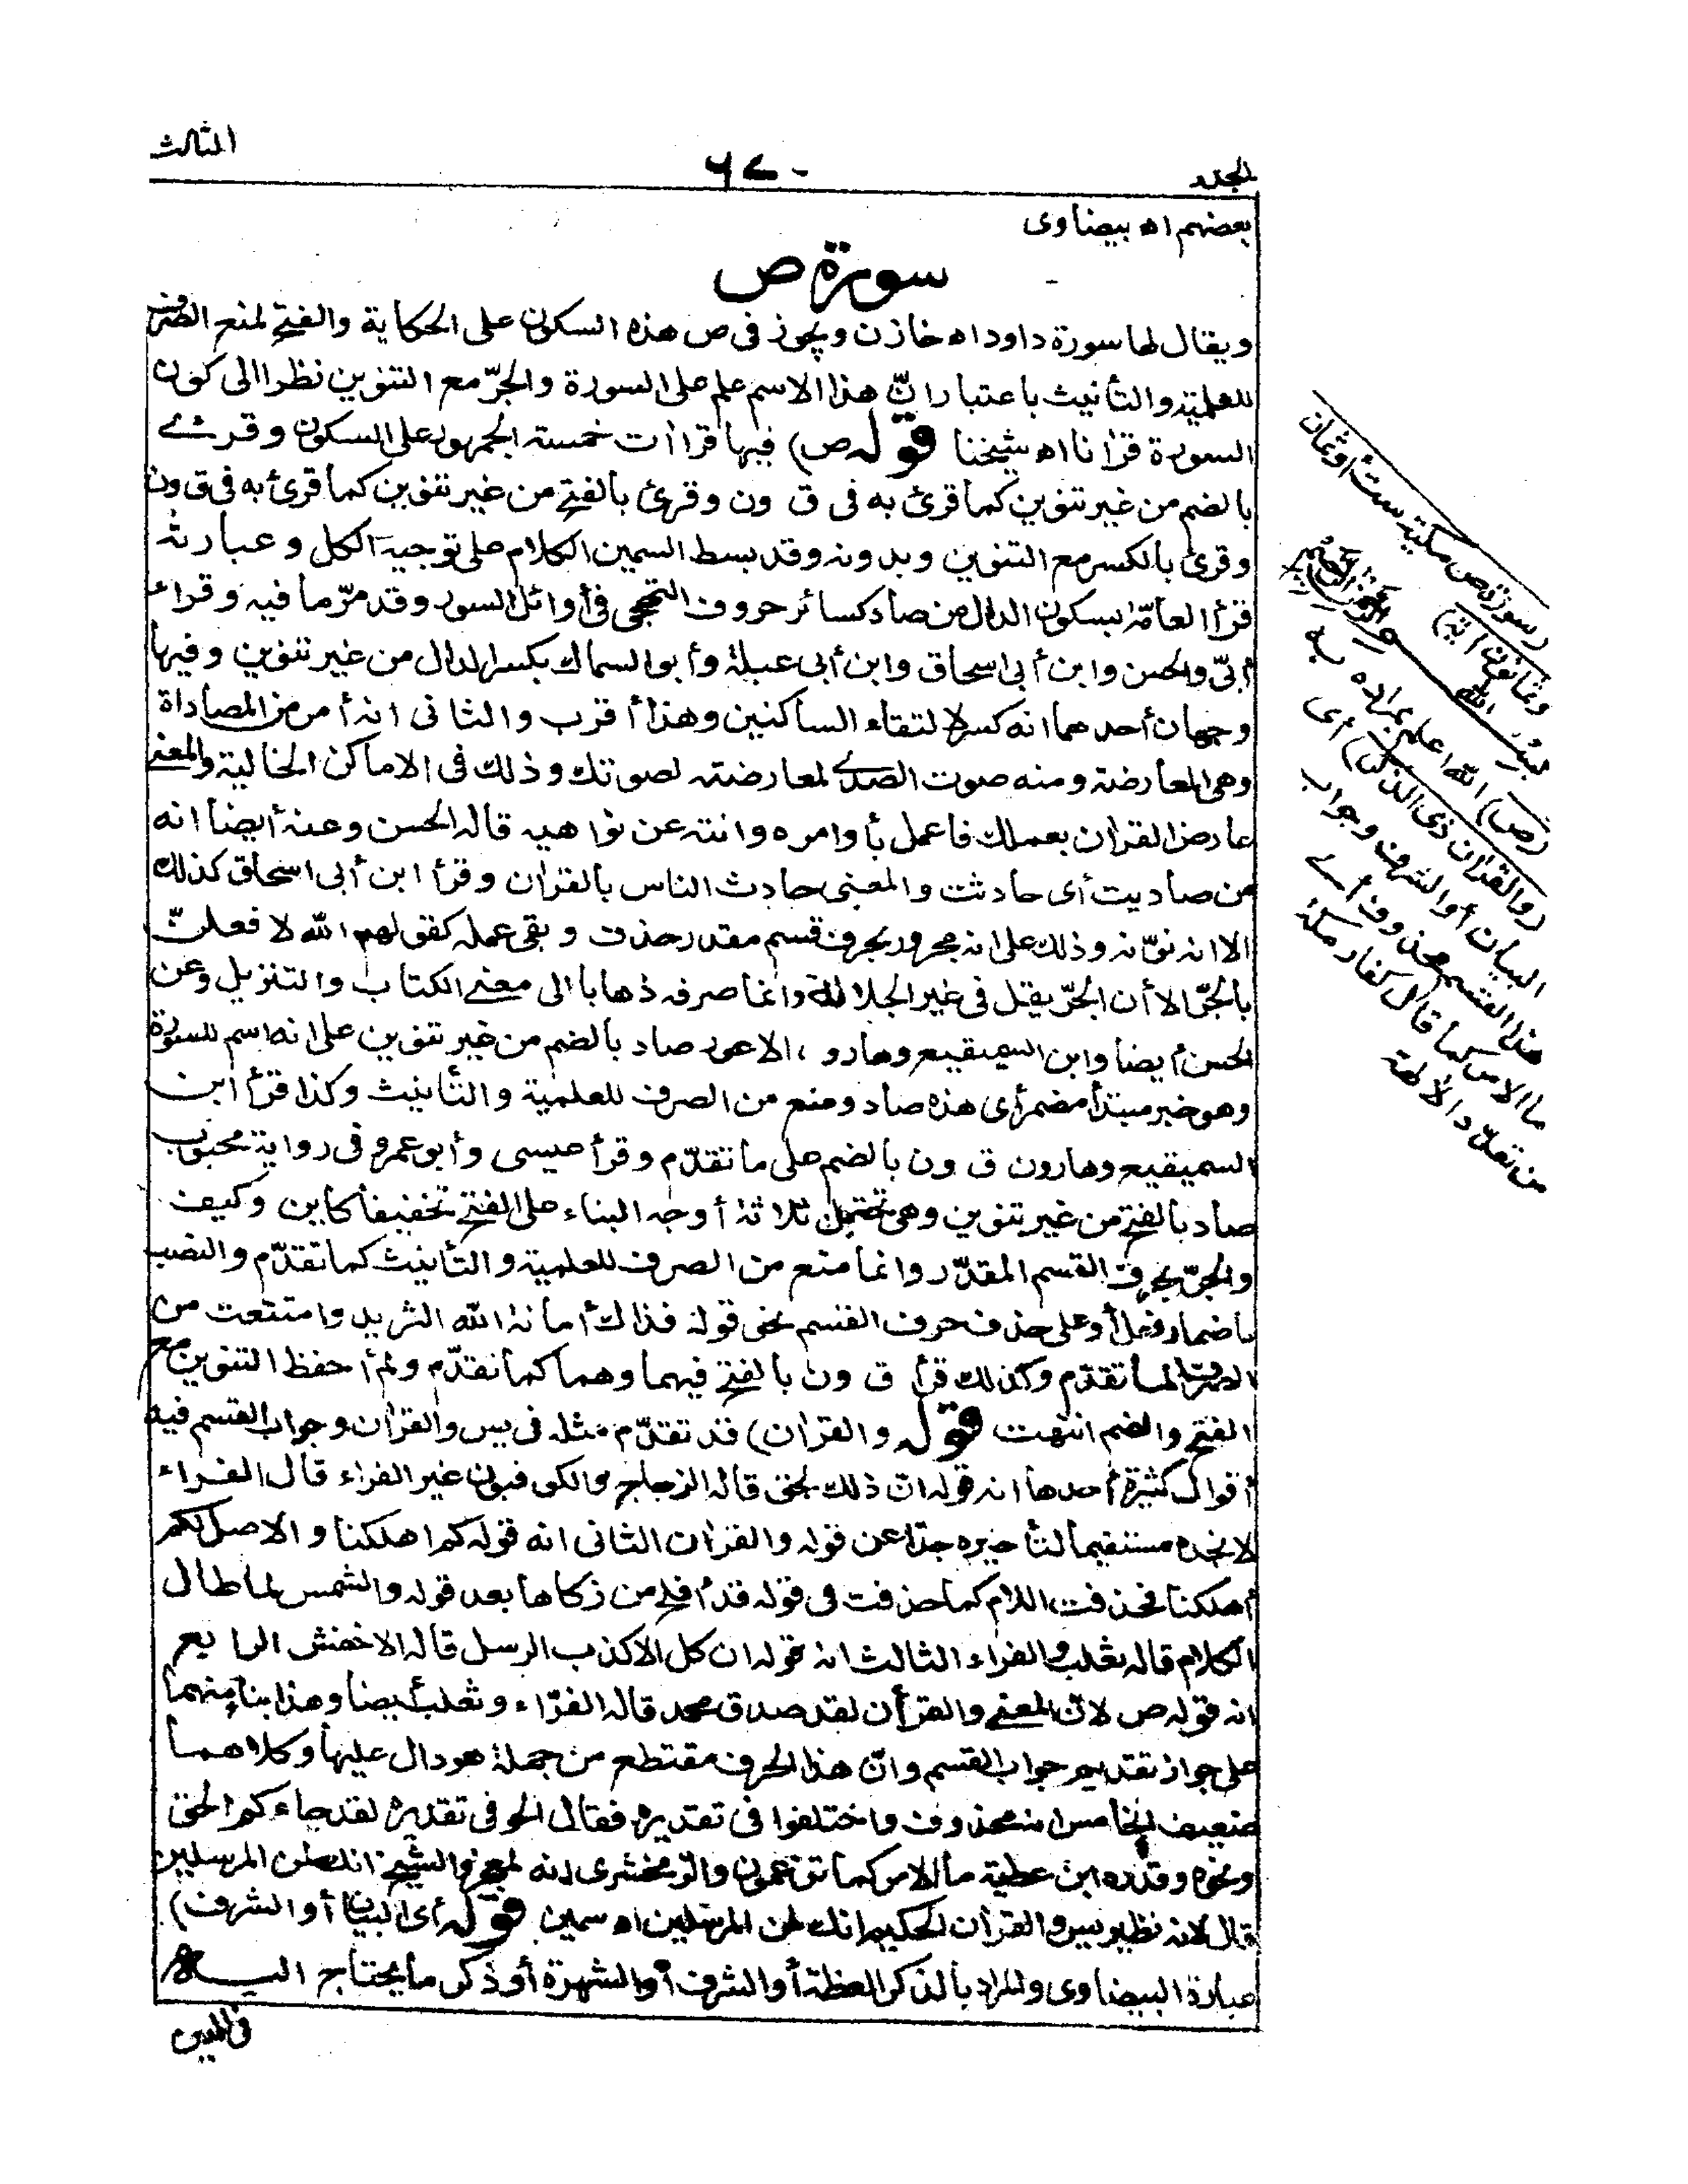 المجلد
٦٧٠
الثالث
بعضهم اه بيضاوى
سورة ص
ويقال لها سورة داود اه خازن ويجوز فى ص هذه السكون على الحكاية والفتح لمنع الصرف
للعلمية والتأنيث باعتبار انّ هذا الاسم علم على السورة والجرّ مع التنوين نظرا الى كون
السورة قرانا اه شيخنا قوله ص) فيها قراات خمسة الجمهور على السكون وقرئ
بالضم من غير تنوين كما قرئ به فى ق ون وقرئ بالفتح من غير تنوين كما قرئ به فى ق ون
وقرئ بالكسر مع التنوين وبدونه وقد بسط السمين الكلام على توجيه الكل وعبارته
قرأ العامّة بسكون الدال من صاد كسائر حروف التهجى فى أوائل السور وقد مرّ ما فيه وقراء
أبىّ والحسن وابن أبى اسحاق وابن أبى عبلة وأبو السماك بكسر الدال من غير تنوين وفيها
وجهان أحدهما انه كسر لالتقاء الساكنين وهذا أقرب والثانى انه أمر من المصاداة
وهى المعارضة ومنه صوت الصدى لمعارضته لصوتك وذلك فى الاماكن الخالية والمعنى
عارض القران بعملك فاعمل بأوامره وانته عن نواهيه قاله الحسن وعنه أيضا انه
من صاديت أى حادثت والمعنى حادث الناس بالقران وقرأ ابن أبى اسحاق كذلك
الا انه نوّنه وذلك على انه مجرور بحرف قسم مقدر حذف وبقى عمله كقولهم الله لافعلنّ
بالجرّ الا أن الجرّ يقل فى غير الجلالة وانما صرفه ذهابا الى معنى الكتاب والتنزيل وعن
الحسن أيضا وابن السميقيع وهارون الاعور صاد بالضم من غير تنوين على انه اسم للسورة
وهو خبر مبتدأ مضمر أى هذه صاد ومنع من الصرف للعلمية والتأنيث وكذا قرأ ابن
السميقيع وهارون ق ون بالضم على ما تقدّم وقرأ عيسى وأبو عمرو فى رواية محبوب
صاد بالفتح من غير تنوين وهى تحتمل ثلاثة أوجه البناء على الفتح تخفيفا كأين وكيف
والجرّ بحرف القسم المقدّر وانما منع من الصرف للعلمية والتأنيث كما تقدّم والنصب
باضمار فعل أو على حذف حرف القسم نحو قوله فذاك أمانة الله الثريد وامتنعت من
الصرف لما تقدّم وكذلك قرأ ق ون بالفتح فيهما وهما كما تقدّم ولم أحفظ التنوين مع
الفتح والضم انتهت قوله والقران) قد تقدّم مثله فى يس والقران وجواب القسم فيه
أقوال كثيرة أحدها انه قوله انّ ذلك لحق قاله الزجاج والكوفيون غير الفراء قال الفراء
لا نجده مستقيما لتأخيره جدّا عن قوله والقران الثانى انه قوله كم اهلكنا والاصل لكم
أهلكنا فحذفت اللام كما حذفت فى قوله قد أفلح من زكاها بعد قوله والشمس لما طال
الكلام قاله ثعلب والفراء الثالث انه قوله ان كل الا كذب الرسل قاله الاخفش الرابع
انه قوله ص لانّ المعنى والقرأن لقد صدق محمد قاله الفرّاء وثعلب أيضا وهذا بناء منهما
على جواز تقديم جواب القسم وانّ هذا الحرف مقتطع من جملة هو دال عليها وكلاهما
ضعيف الخامس انه محذوف واختلفوا فى تقديره فقال الحوفى تقديره لقد جاءكم الحق
ونحوه وقدره ابن عطية ما الامر كما تزعمون والزمخشرى انه لمعجز والشيخ انك لمن المرسلين
قال لانه نظير يس والقرأن الحكيم انك لمن المرسلين اه سمين قوله أى البيان أو الشرف)
عبارة البيضاوى والمراد بالذكر العظة أو الشرف أو الشهرة أو ذكر ما يحتاج اليه
فى الدين
(سورة ص مكية ست أو ثمان
وثمانون اية)
بسم الله الرحمن الرحيم
(ص) الله اعلم بمراده به
(والقران ذى الذكر) أى
البيان أو الشرف وجواب
هذا القسم محذوف أى
ما الامر كما قال كفار مكة
من تعدّد الالهة